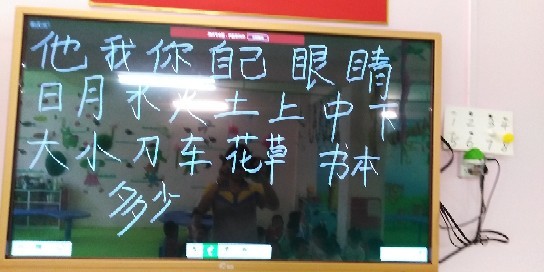 他我你自己眼睛
日月水火土上中下
大小刀车花草书本
多少